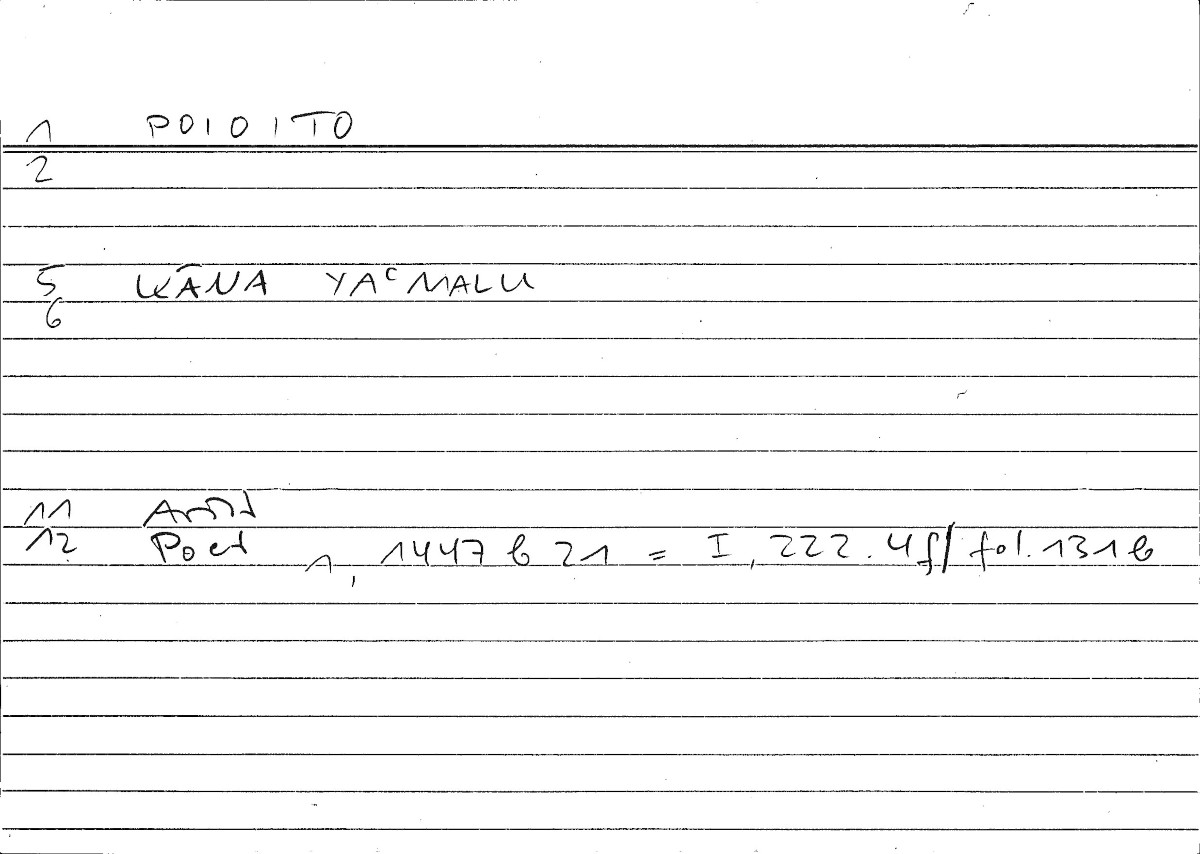 1 POIOITO
2
5 KĀNA YAᶜMALU
6
11 Arist
12 Poet 1, 1447 b 21 = I, 222.4f/ fol. 131b